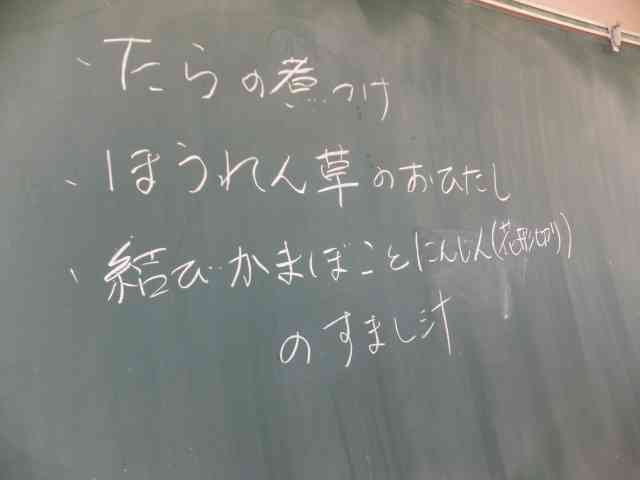 、たらの煮つけ
、ほうれん草のおひたし
、結びかまぼことにんじん(花形切り)
のすまし汁